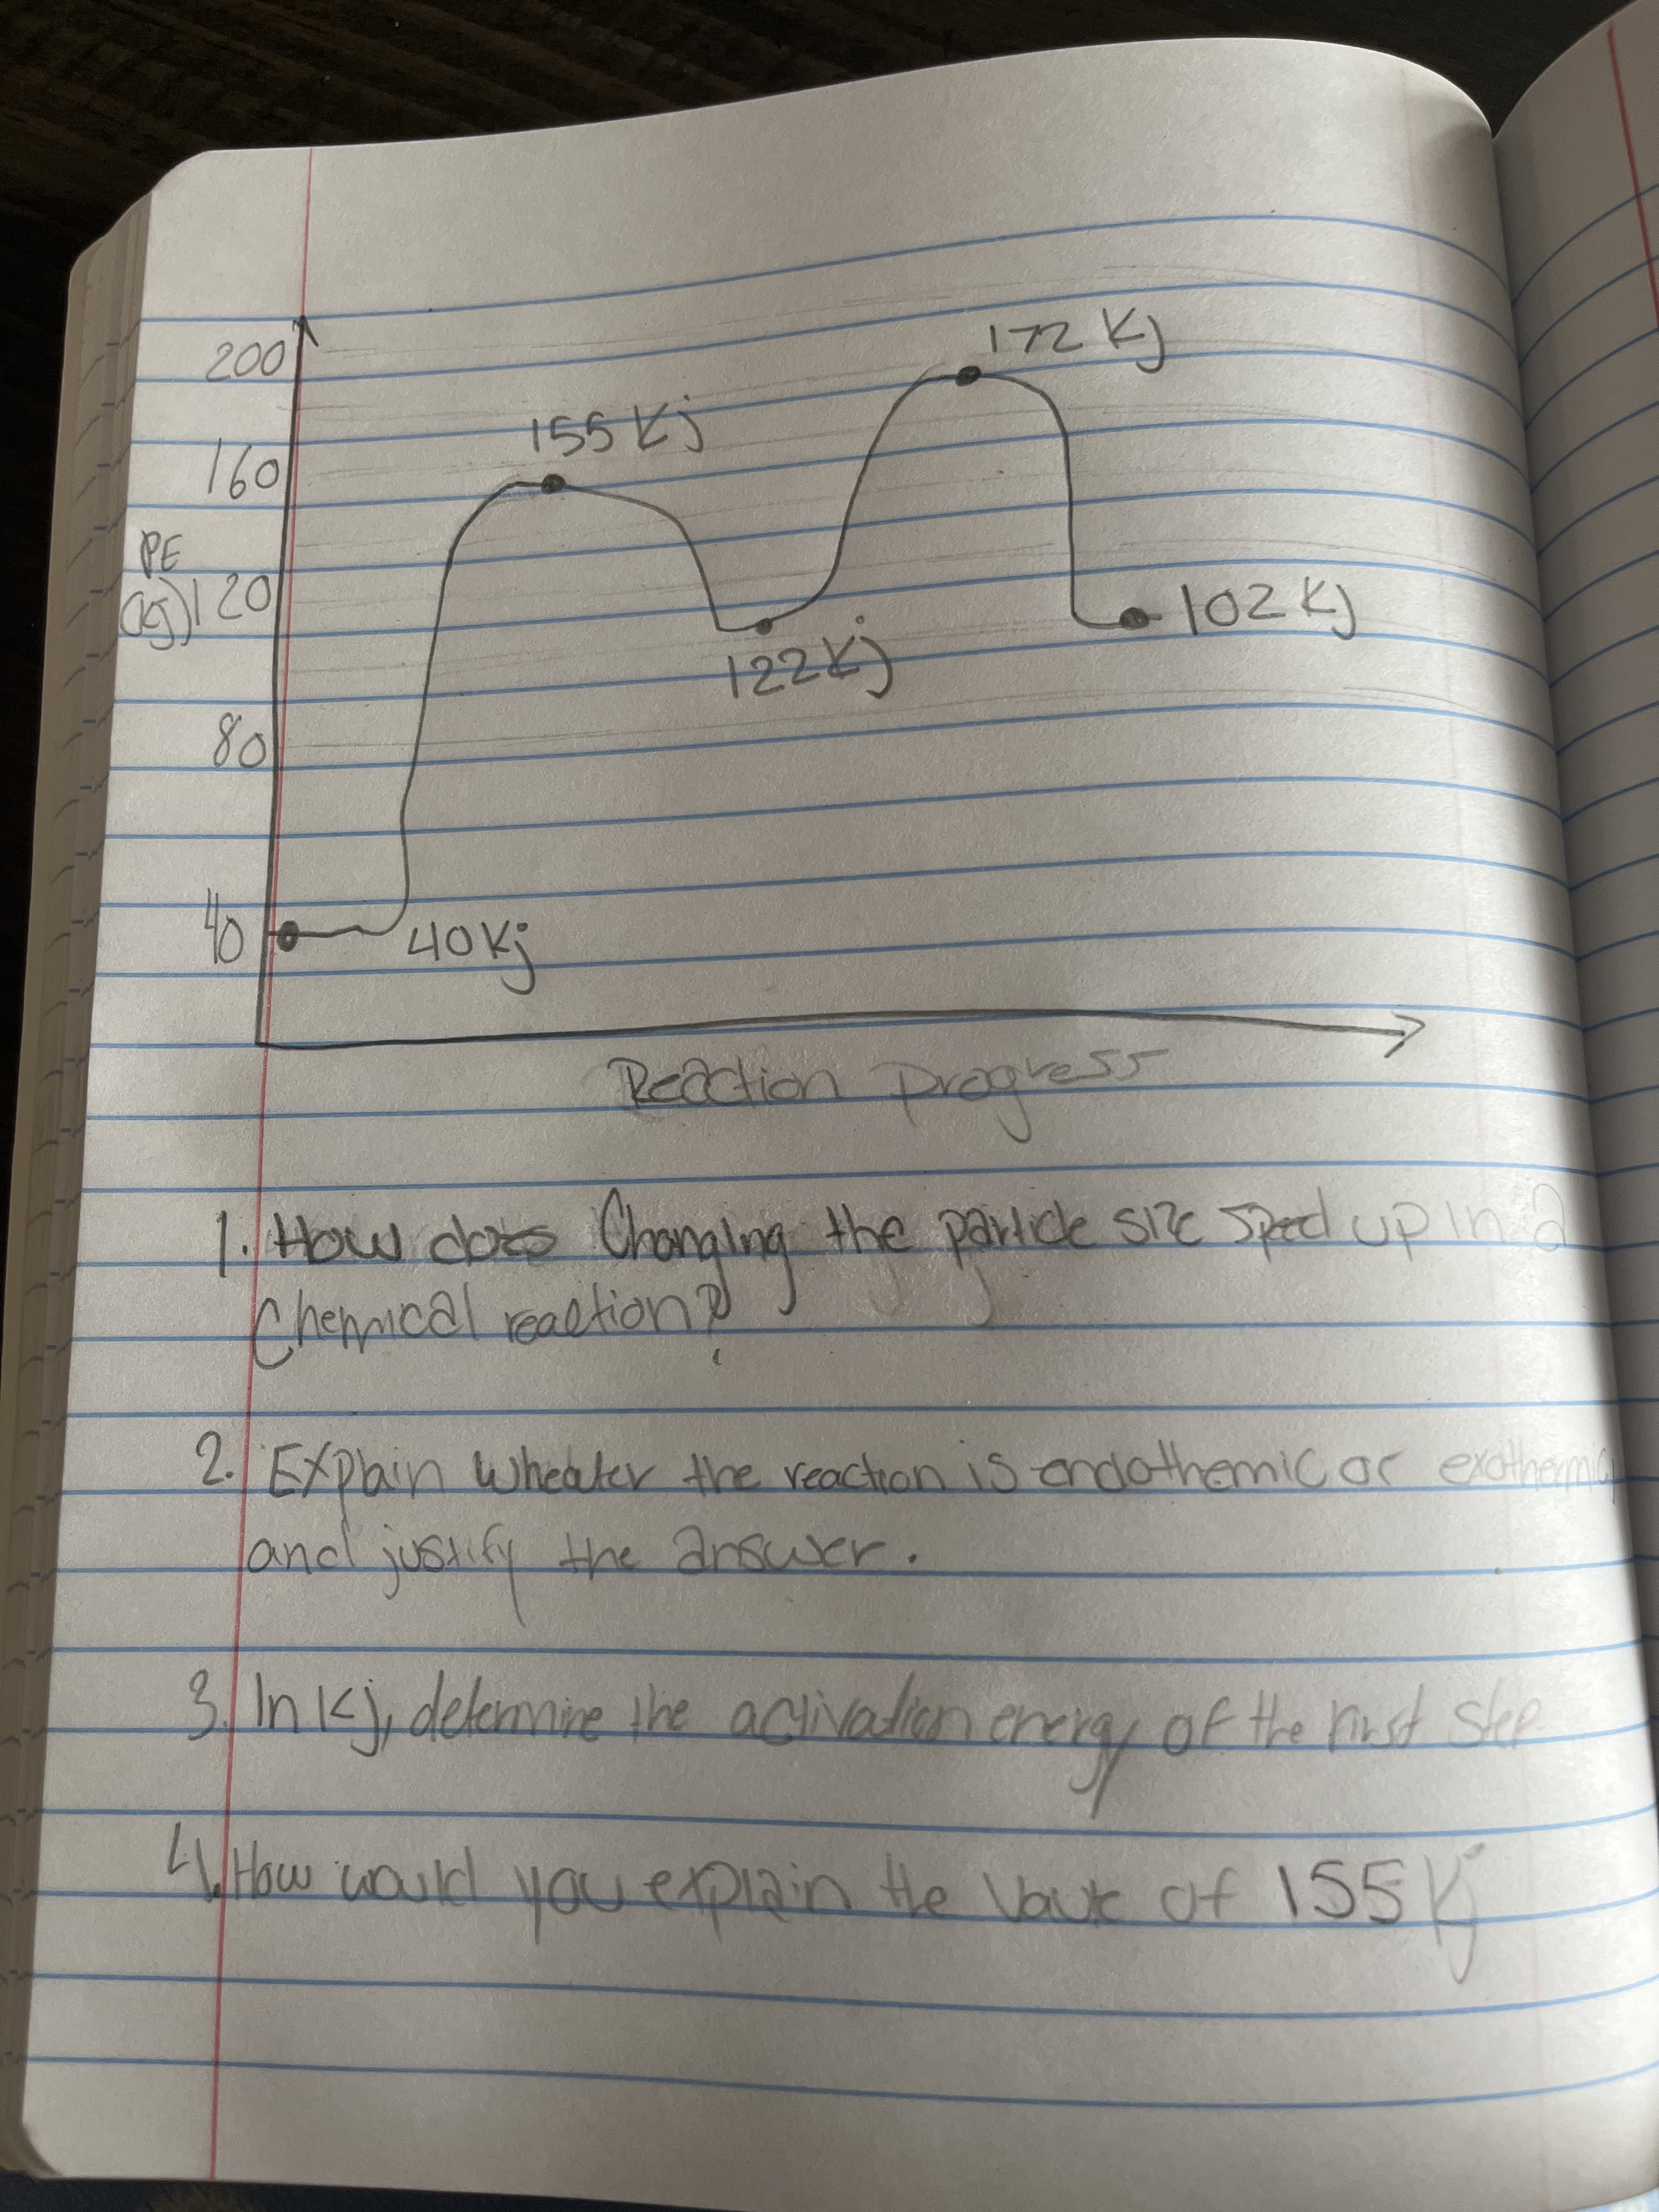 200
172 Kj
155 Kj
160
PE
(Kj) 120
102 Kj
122 Kj
80
40
40 Kj
Reaction Progress
1. How does Changing the particle size speed up in a
Chemical reaction?
2. Explain wheater the reaction is endothemic or exothermic,
and justify the answer.
3. In Kj, determine the activation energy of the first step
4. How would you explain the value of 155 Kj